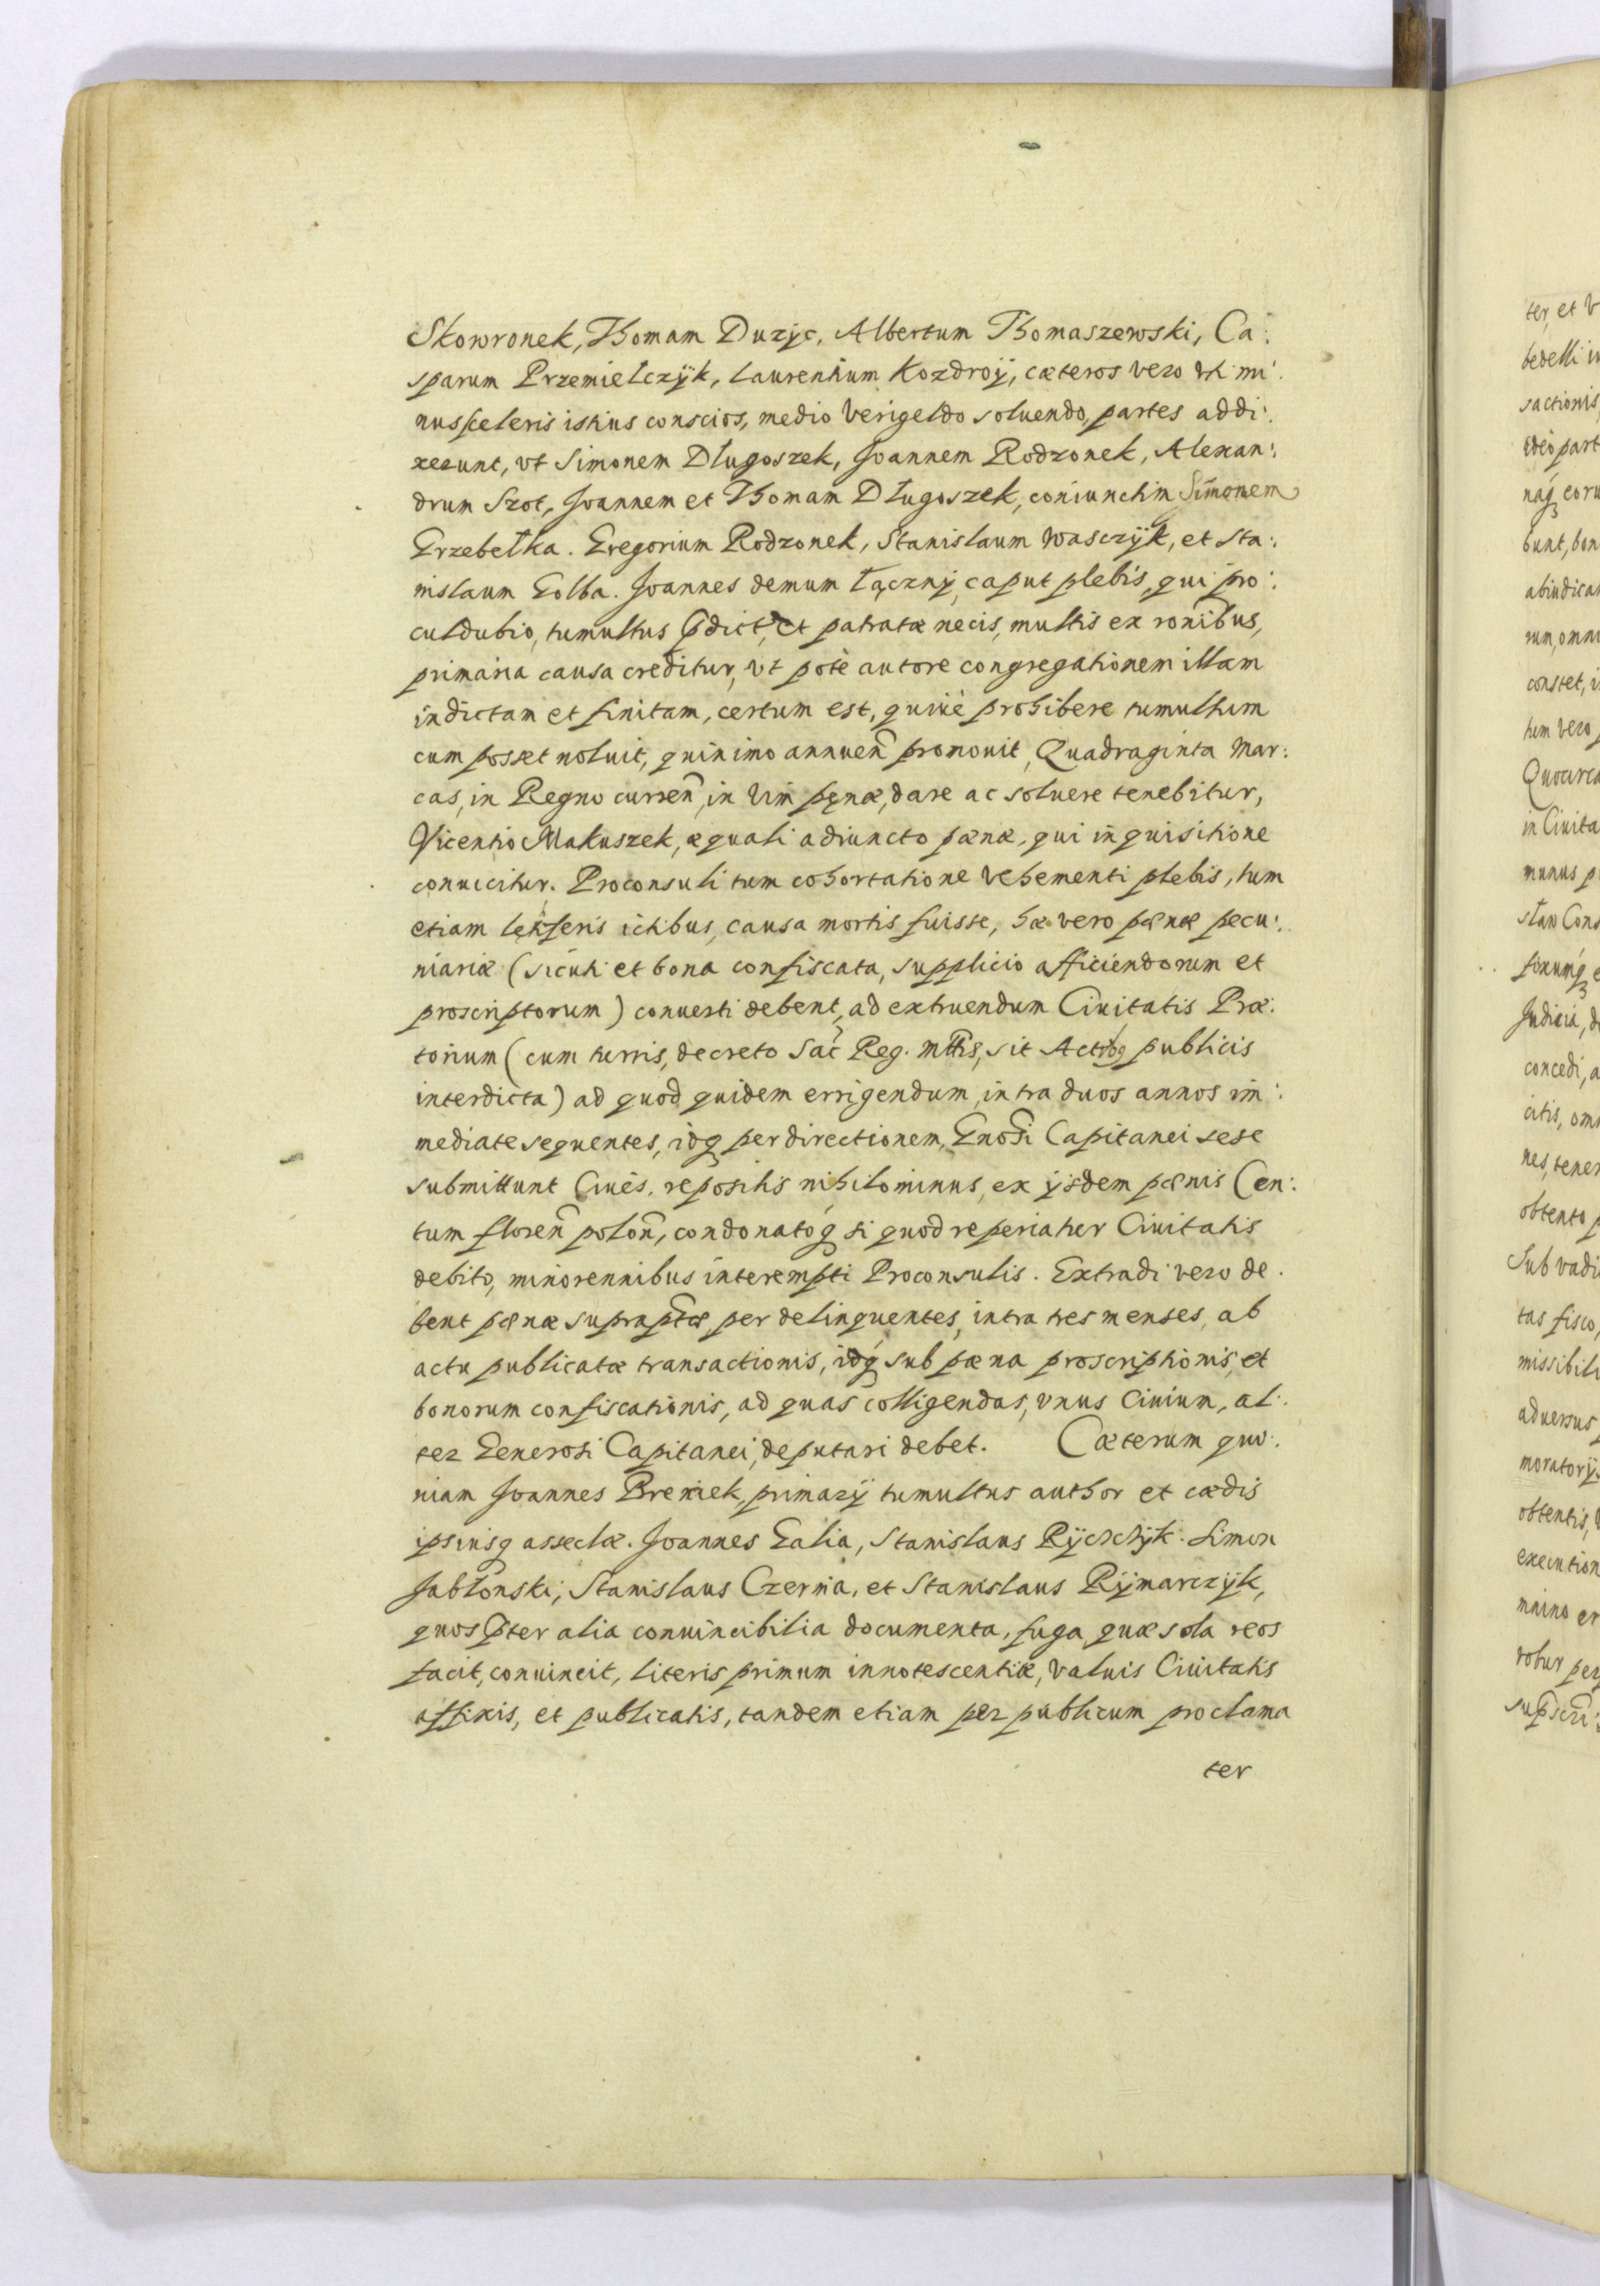 Skowronek, Thomam Duzÿc, Albertum Thomaszewski, Ca:
sparum Przemielczÿk, Laurentium Kozdroÿ, cæteros vero vti mi:
nus sceleris istius conscios, medio Verigeldo soluendo, partes addi:
xerunt, vt Simonem Długoszek, Joannem Rodzonek, Alexan:
drum Szot, Joannem et Thomam Długoszek, coniunctim Simonem
Grzebełka. Gregorium Rodzonek, Stanislaum Wasczÿk, et Sta:
nislaum Golba. Joannes demum Łączny, caput plebis, qui pro:
culdubio, tumultus et patratæ necis, multis ex ronibus,
primaria causa creditur, vt pote autore congregationem illam
indictam et finitam, certum est, quiue prohibere tumultum
cum posset noluit, quinimo annuen promouit, Quadraginta Mar:
cas, in Regno curren, in Vim pęnæ, dare ac soluere tenebitur,
Vicentio Makuszek, æquali adiuncto pænæ, qui inquisitione
conuicitur. Proconsuli tum cohortatione vehementi plebis, tum
etiam ictibus, causa mortis fuisse, hæ vero pænæ pecu:
niariæ (sicuti et bona confiscata, supplicio afficiendorum et
proscriptorum) conuerti debent, ad extruendum Ciuitatis Præ:
torium (cum turris, decreto Sac Reg. Mttis, sit publicis
interdicta) ad quod quidem errigendum, intra duos annos im:
mediate sequentes, idq per directionem, Gnosi Capitanei sese
submittunt Ciues, repositis nihilominus, ex ÿsdem pænis Cen:
tum floren polon, condonatoq si quod reperiatur Ciuitatis
debito, minorennibus interempti Proconsulis. Extradi vero de.
bent pænæ supraptæ, per delinquentes, intra tres menses, ab
actu publicatæ transactionis, idq sub pæna proscriptionis, et
bonorum confiscationis, ad quas colligendas, vnus Ciuium, al:
ter Generosi Capitanei, deputari debet. Cæterum quo:
niam Joannes Breniek, primarÿ tumultus author et cædis
ipsiusq asseclæ. Joannes Galia, Stanislaus Rÿchcÿk. Simon
Jabłonski, Stanislaus Czernia, et Stanislaus Rÿmarczÿk,
quos pter alia conuincibilia documenta, fuga, quæ sola reos
facit, conuincit, literis primum innotescentiæ, valuis Ciuitatis
affixis, et publicatis, tandem etiam per publicum proclama
ter